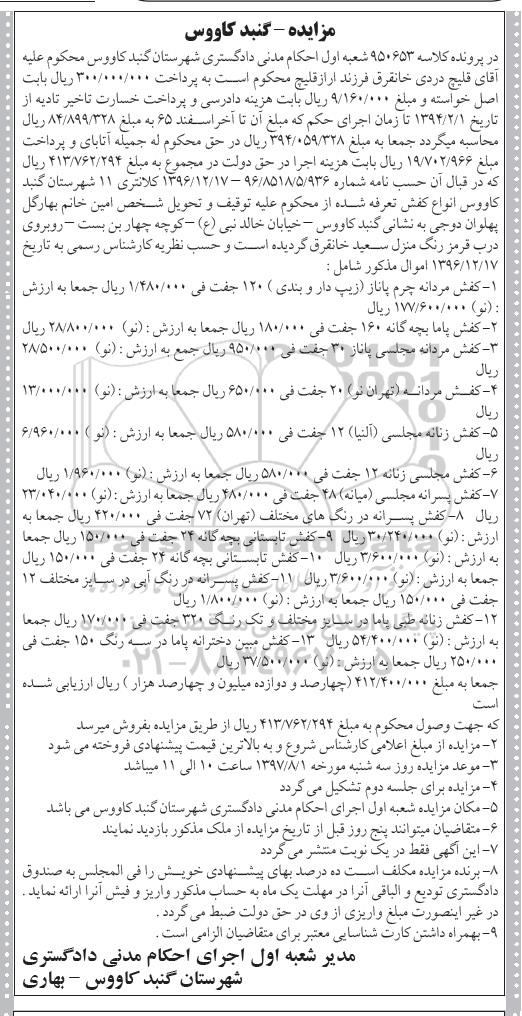 مزایده - گنبد کاووس
در پرونده کلاسه ۹۵۰۶۵۳ شعبه اول احکام مدنی دادگستری شهرستان گنبد کاووس محکوم علیه
آقای قلیچ دردی خانقرق فرزند ارازقلیچ محکوم است به پرداخت ۳۰۰/۰۰۰/۰۰۰ ریال بابت
اصل خواسته و مبلغ ۹/۱۶۰/۰۰۰ ریال بابت هزینه دادرسی و پرداخت خسارت تاخیر تادیه از
تاریخ ۱۳۹۴/۲/۱ تا زمان اجرای حکم که مبلغ آن تا آخر اسفند ۶۵ به مبلغ ۸۴/۸۹۹/۳۲۸ ریال
محاسبه میگردد جمعا به مبلغ ۳۹۴/۰۵۹/۳۲۸ ریال در حق محکوم له جمیله آتابای و پرداخت
مبلغ ۱۹/۷۰۲/۹۶۶ ریال بابت هزینه اجرا در حق دولت در مجموع به مبلغ ۴۱۳/۷۶۲/۲۹۴ ریال
که در قبال آن حسب نامه شماره ۹۶/۸۵۱۸/۵/۹۳۶ - ۱۳۹۶/۱۲/۱۷ کلانتری ۱۱ شهرستان گنبد
کاووس انواع کفش تعرفه شده از محکوم علیه توقیف و تحویل شخص امین خانم بهارگل
پهلوان دوجی به نشانی گنبد کاووس - خیابان خالد نبی (ع) - کوچه چهار بن بست - روبروی
درب قرمز رنگ منزل سعید خانقرق گردیده است و حسب نظریه کارشناس رسمی به تاریخ
۱۳۹۶/۱۲/۱۷ اموال مذکور شامل :
۱- کفش مردانه چرم پاناز (زیپ دار و بندی ) ۱۲۰ جفت فی ۱/۴۸۰/۰۰۰ ریال جمعا به ارزش
: (نو) ۱۷۷/۶۰۰/۰۰۰ ریال
۲- کفش پاما بچه گانه ۱۶۰ جفت فی ۱۸۰/۰۰۰ ریال جمعا به ارزش : (نو) ۲۸/۸۰۰/۰۰۰ ریال
۳- کفش مردانه مجلسی پاناز ۳۰ جفت فی ۹۵۰/۰۰۰ ریال جمع به ارزش : (نو) ۲۸/۵۰۰/۰۰۰
ریال
۴- کفش مردانه (تهران نو) ۲۰ جفت فی ۶۵۰/۰۰۰ ریال جمعا به ارزش : (نو) ۱۳/۰۰۰/۰۰۰
ریال
۵- کفش زنانه مجلسی (آلنیا) ۱۲ جفت فی ۵۸۰/۰۰۰ ریال جمعا به ارزش : (نو ) ۶/۹۶۰/۰۰۰
ریال
۶- کفش مجلسی زنانه ۱۲ جفت فی ۵۸۰/۰۰۰ ریال جمعا به ارزش : (نو) ۱/۹۶۰/۰۰۰ ریال
۷- کفش پسرانه مجلسی (میانه) ۴۸ جفت فی ۴۸۰/۰۰۰ ریال جمعا به ارزش : (نو) ۲۳/۰۴۰/۰۰۰
ریال ۸- کفش پسرانه در رنگ های مختلف (تهران) ۷۲ جفت فی ۴۲۰/۰۰۰ ریال جمعا به
ارزش : (نو) ۳۰/۲۴۰/۰۰۰ ریال ۹- کفش تابستانی بچه گانه ۲۴ جفت فی ۱۵۰/۰۰۰ ریال جمعا
به ارزش : (نو) ۳/۶۰۰/۰۰۰ ریال ۱۰- کفش تابستانی بچه گانه ۲۴ جفت فی ۱۵۰/۰۰۰ ریال
جمعا به ارزش : (نو) ۳/۶۰۰/۰۰۰ ریال ۱۱- کفش پسرانه در رنگ آبی در سایز مختلف ۱۲
جفت فی ۱۵۰/۰۰۰ ریال جمعا به ارزش : (نو) ۱/۸۰۰/۰۰۰ ریال
۱۲- کفش زنانه طبی پاما در سایز مختلف و تک رنگ ۳۲۰ جفت فی ۱۷۰/۰۰۰ ریال جمعا
به ارزش : (نو) ۵۴/۴۰۰/۰۰۰ ریال ۱۳- کفش مبین دخترانه پاما در سه رنگ ۱۵۰ جفت فی
۲۵۰/۰۰۰ ریال جمعا به ارزش : (نو) ۳۷/۵۰۰/۰۰۰ ریال
جمعا به مبلغ ۴۱۲/۴۰۰/۰۰۰ (چهارصد و دوازده میلیون و چهارصد هزار ) ریال ارزیابی شده
است
که جهت وصول محکوم به مبلغ ۴۱۳/۷۶۲/۲۹۴ ریال از طریق مزایده بفروش میرسد
۲- مزایده از مبلغ اعلامی کارشناس شروع و به بالاترین قیمت پیشنهادی فروخته می شود
۳- موعد مزایده روز سه شنبه مورخه ۱۳۹۷/۸/۱ ساعت ۱۰ الی ۱۱ میباشد
۴- مزایده برای جلسه دوم تشکیل می گردد
۵- مکان مزایده شعبه اول اجرای احکام مدنی دادگستری شهرستان گنبد کاووس می باشد
۶- متقاضیان میتوانند پنج روز قبل از تاریخ مزایده از ملک مذکور بازدید نمایند
۷- این آگهی فقط در یک نوبت منتشر می گردد
۸- برنده مزایده مکلف است ده درصد بهای پیشنهادی خویش را فی المجلس به صندوق
دادگستری تودیع و الباقی آنرا در مهلت یک ماه به حساب مذکور واریز و فیش آنرا ارائه نماید .
در غیر اینصورت مبلغ واریزی از وی در حق دولت ضبط می گردد .
۹- بهمراه داشتن کارت شناسایی معتبر برای متقاضیان الزامی است .
مدیر شعبه اول اجرای احکام مدنی دادگستری
شهرستان گنبد کاووس - بهاری